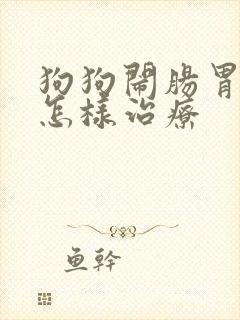 狗狗鬧腸胃
怎樣治療
鱼幹